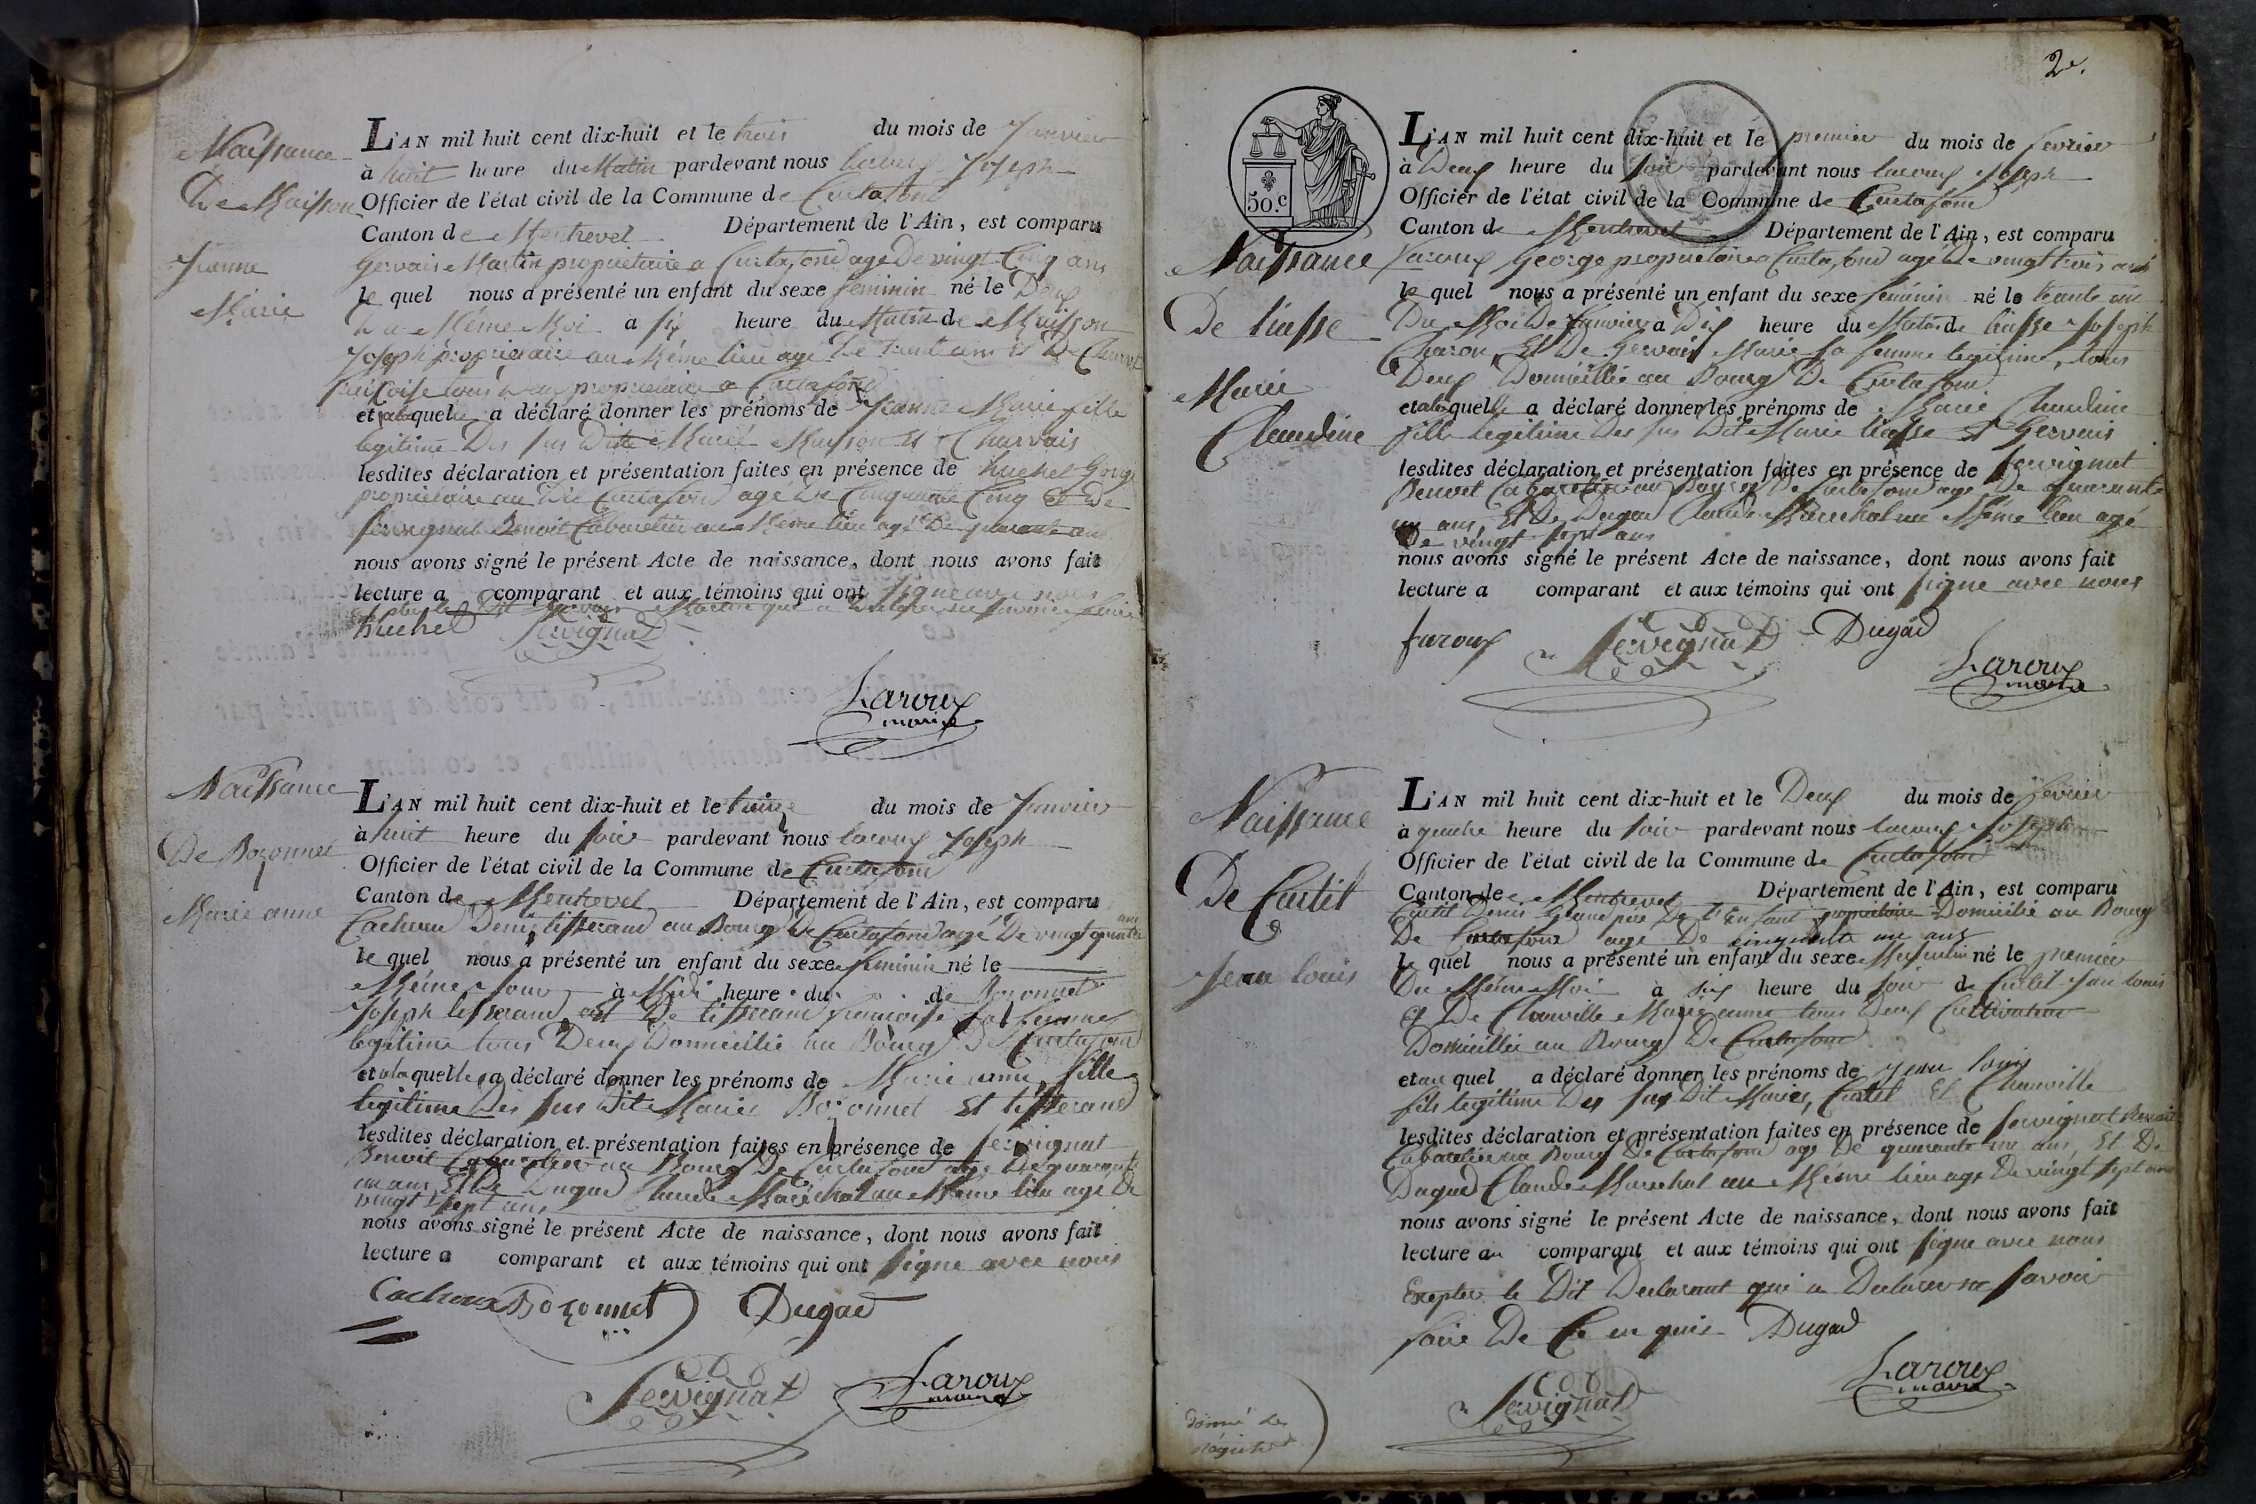 Naissance
De Maisson
Jeanne
Marie
L'AN mil huit cent dix-huit et le trois du mois de Janvier
à huit heure du Matin pardevant nous Laroux Joseph
Officier de l'état civil de la Commune de Curtafond
Canton de Montrevel Département de l'Ain, est comparu
Gervais Martin propriétaire a Curtafond agé De vingt Cinq ans
le quel nous a présenté un enfant du sexe feminin né le Deux
Du Même Moi a six heure du Matin de Maisson
Joseph propriétaire au Même lieu agé De trente ans Et De
tous Deux propriétaire a Curtafond
et a la quelle a déclaré donner les prénoms de Jeanne Marie fille
legitime Des sus Dite Marié Maisson Et Charvais
lesdites déclaration et présentation faites en présence de huchet George
propriétaire au Dit Curtafond agé De Cinquante Cinq Et De
Servignat Benoit Cabaretier au Même lieu agé De quarante ans
nous avons signé le présent Acte de naissance, dont nous avons fait
lecture a comparant et aux témoins qui ont signe avec nous
Gervais Martin qui a
huchet Servignat
Laroux
maire
Naissance
De Bozonnet
Marie anne
L'AN mil huit cent dix-huit et le treize du mois de Janvier
à huit heure du soir pardevant nous Laroux Joseph
Officier de l'état civil de la Commune de Curtafond
Canton de Montrevel Département de l'Ain, est comparu
Cacheux Denis tisserand au Bourg De Curtafond agé De vingt quatre ans
le quel nous a présenté un enfant du sexe feminin né le
Même Jour à Midi heure du de Bozonnet
Joseph tisserand et De tisserand francoise sa femme
legitime tous Deux Domicillié au Bourg De Curtafond
et a la quelle a déclaré donner les prénoms de Marie anne, fille
legitime Des sus Dit Marier Bozonnet Et tisserand
lesdites déclaration et présentation faites en présence de Servignat
Benoit Cabaretier au Bourg De Curtafond agé De quarante
un ans Et De Dugad Claude Maréchal au Même lieu agé De
vingt sept ans
nous avons signé le présent Acte de naissance, dont nous avons fait
lecture a comparant et aux témoins qui ont signe avec nous
Cacheux Bozonnet Dugad
Servignat Laroux
maire
2e.
50.c
Naissance
De liasse
Marie
Claudine
L'AN mil huit cent dix-huit et le premier du mois de fevrier
à Deux heure du soir pardevant nous Laroux Joseph
Officier de l'état civil de la Commune de Curtafond
Canton de Montrevel Département de l'Ain, est comparu
George propriétaire a Curtafond agé De vingt trois ans
le quel nous a présenté un enfant du sexe feminin né le trente un
Du Moi De Janvier a Dix heure du Matin de liasse Joseph
Charon, Et De Gervais Marie sa femme legitime, tous
Deux Domicillié au Bourg De Curtafond
et a la quelle a déclaré donner les prénoms de Marie Claudine
fille legitime Des sus Dit Marie liasse Et Gervais
lesdites déclaration et présentation faites en présence de Servignat
Benoit Cabaretier au Bourg De Curtafond agé De quarante
un ans, Et De Dugad Claude Marechal au Même lieu agé
De vingt sept ans
nous avons signé le présent Acte de naissance, dont nous avons fait
lecture a comparant et aux témoins qui ont signe avec nous
Servignat Dugad
Laroux
maire
Naissance
De Curtil
Jean louis
L'AN mil huit cent dix-huit et le Deux du mois de fevrier
à quatre heure du soir pardevant nous Laroux Joseph
Officier de l'état civil de la Commune de Curtafond
Canton de Montrevel Département de l'Ain, est comparu
Curtil Denis Grand pere De l'Enfant propriétaire Domicilié au Bourg
De Curtafond agé De cinquante un ans
le quel nous a présenté un enfant du sexe Masculin né le premier
Du Même Moi à six heure du soir de Curtil Jean Louis
Et De Chanville Marie anne tous Deux Cultivateur
Domicillié au Bourg De Curtafond
et au quel a déclaré donner les prénoms de Jean louis
fils legitime Des sus Dit Marier, Curtil Et Chanville
lesdites déclaration et présentation faites en présence de Servignat Benoit
Cabaretier au Bourg De Curtafond agé De quarante un ans, Et De
Dugad Claude Marechal au Même lieu agé De vingt sept ans
nous avons signé le présent Acte de naissance, dont nous avons fait
lecture au comparant et aux témoins qui ont signe avec nous
Excepter le Dit Declarant qui a Declarer ne savoir
faire De Ce en quis Dugad
Laroux
maire
Servignat